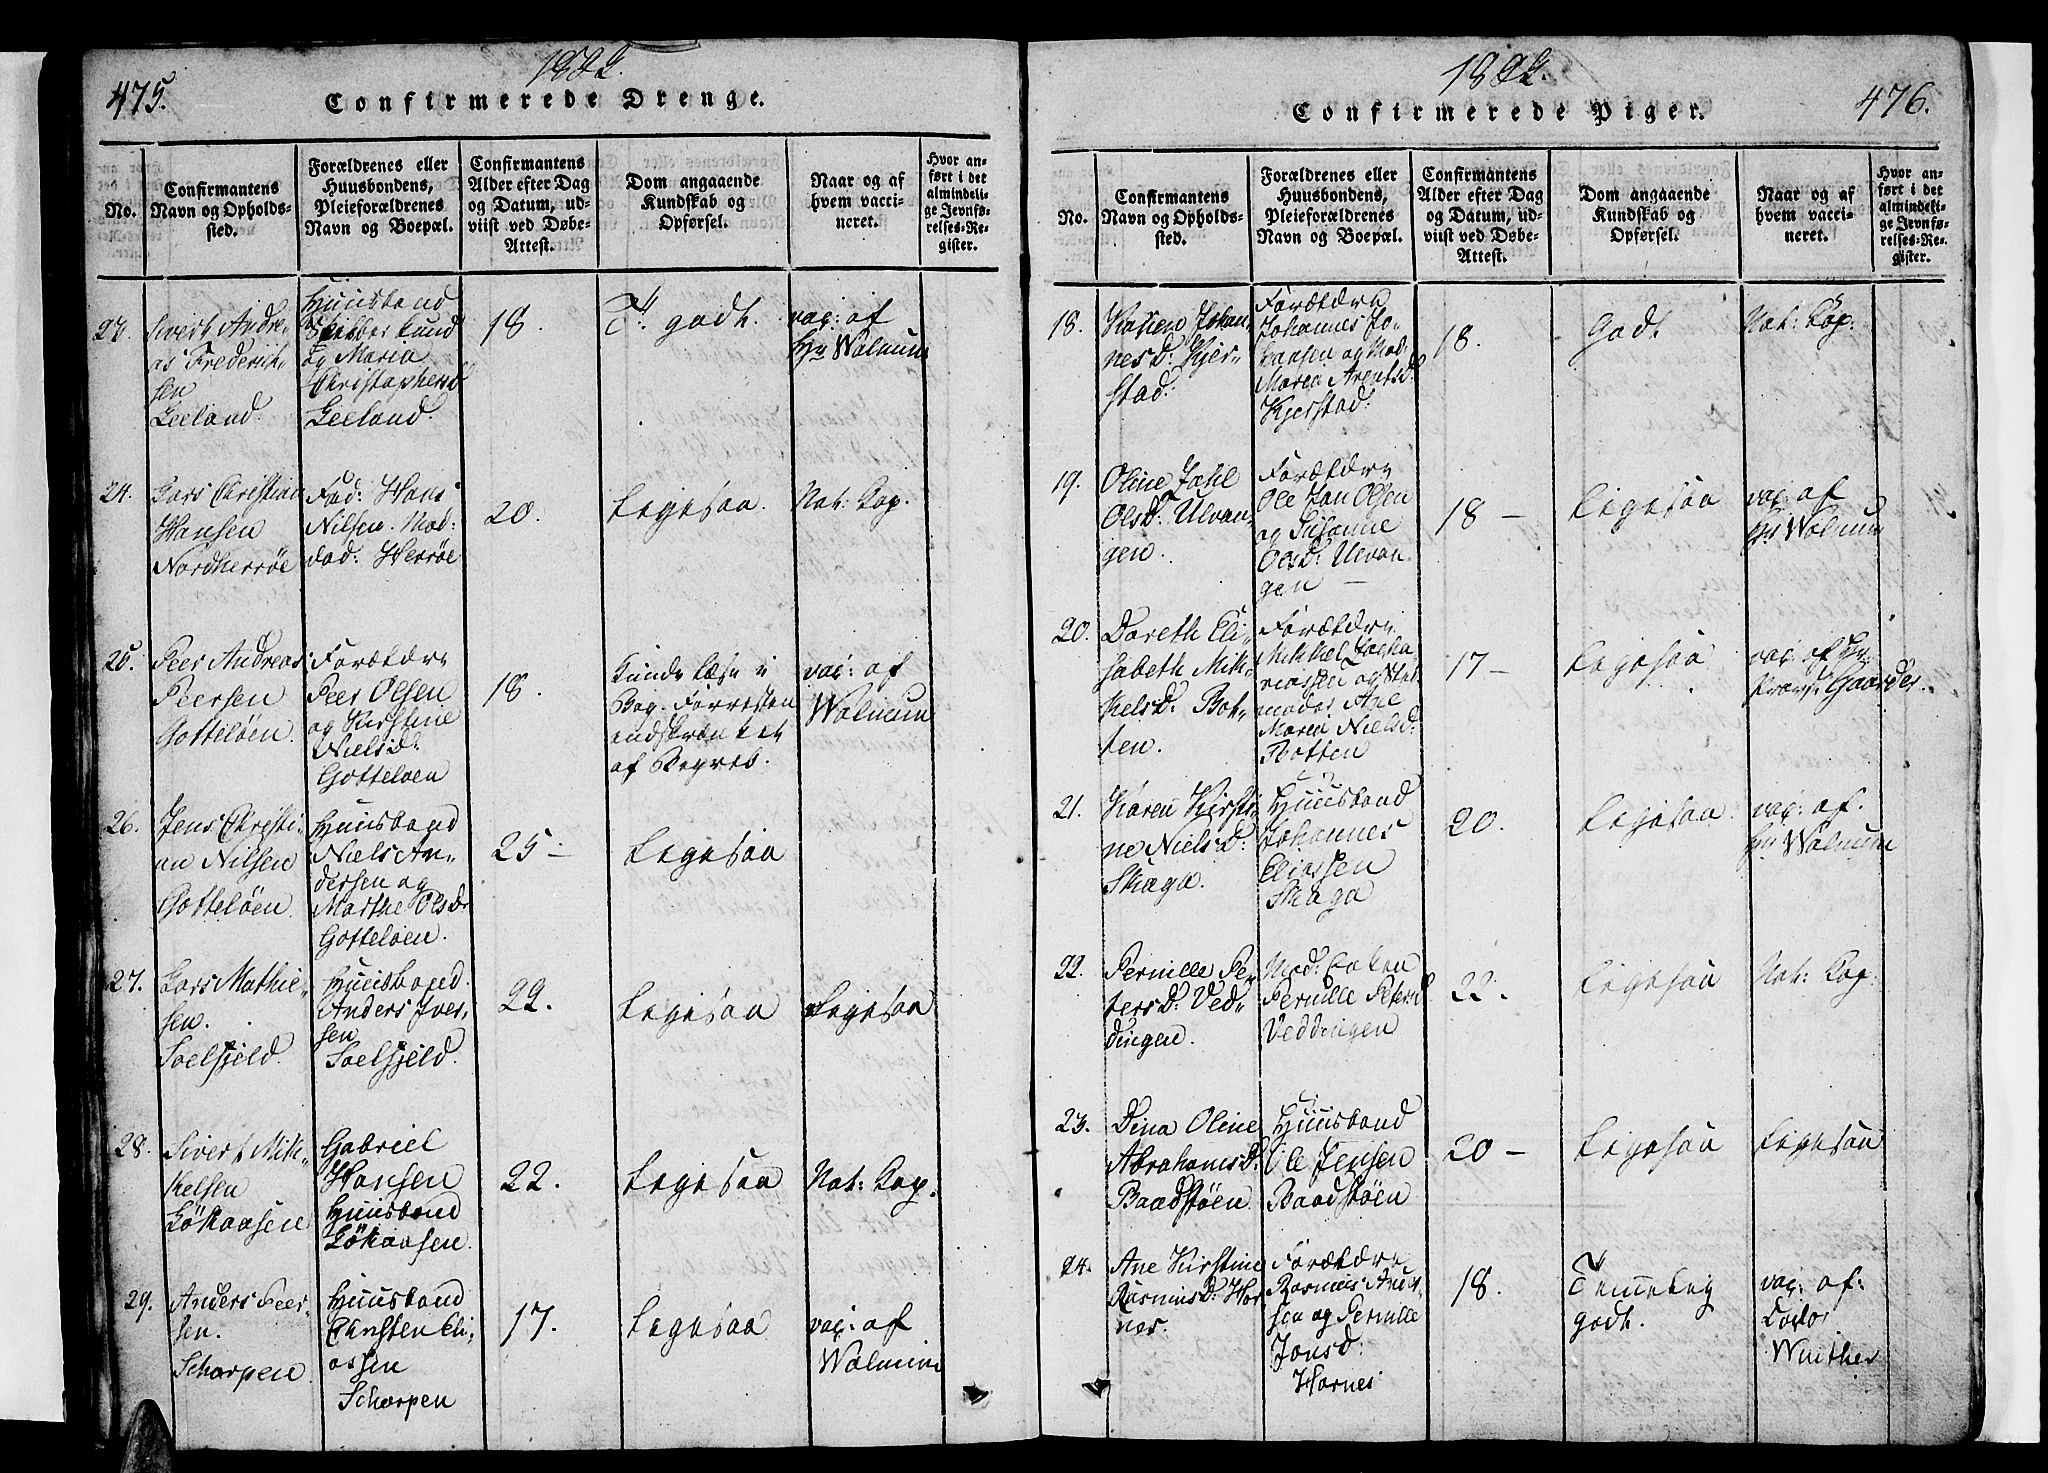 475.
1822.
Confirmerede Drenge.
No.
Confirmantens
Navn og Opholds-
sted.
Forældrenes eller
Huusbondens,
Pleieforældrenes
Navn og Boepæl.
Confirmantens
Alder efter Dag
og Datum, ud-
viist ved Døbe-
Attest.
Dom angaaende
Kundskab og
Opførsel.
Naar og af
hvem vacci-
neret.
Hvor an-
ført i det
almindeli-
ge Jevnfø-
relses-Re-
gister.
Sivert Andre-
as Frederik-
sen
Geeland.
Huusbond
og Maria
Christophersd
Geeland.
18.
T. godt.
vac: af
Hr Walnum
24.
Lars Christian
Hansen
Nordherrøe
Fad: Hans
Nilsen. Mod:
død: Herrøe
20.
Ligesaa.
Nat: Kop.
25.
Peer Andreas
Peersen
Gotteløen.
Forældre
Peer Olsen
og Kirstine
Nielsd:
Gotteløen
18.
Kunde læse i
Bog. Forresten
indskrænket
af Begreb.
vac: af
Walnum
26.
Jens Christi-
an Nilsen
Gotteløen.
Huusbond
Niels An-
dersen og
Marthe Olsdr
Gotteløen.
25-
Ligesaa
27.
Lars Mathie-
sen.
Soelfjeld.
Huusbond.
Anders Iver-
sen
Soelfjeld.
22.
Ligesaa
Ligesaa
28.
Sivert Mik-
kelsen
Løkaasen
Gabriel
Hansen
Huusbond
Løkaasen.
22.
Ligesaa
Nat: Kop.
29.
Anders Peer-
sen.
Scharpen.
Huusbond
Carsten Eli-
assen
Scharpen
17.
Ligesaa
vac: af
Walnum
1822.
Confirmerede Piger.
476.
No.
Confirmantens
Navn og Opholds-
sted.
Forældrenes eller
Huusbondens,
Pleieforældrenes
Navn og Boepæl.
Confirmantens
Alder efter Dag
og Datum, ud-
viist ved Døbe-
Attest.
Dom angaaende
Kundskab og
Opførsel.
Naar og af
hvem vacci-
neret.
Hvor an-
ført i det
almindeli-
ge Jevnfø-
relses-Re-
gister.
18.
Karen Johan-
nesd: Kjer-
stad.
Forældre
Johannes Jo-
hansen og Mod
Maren Arentsd:
Kjerstad.
18.
Godt
Nat: Kop:
19.
Oline Jæhl
Olsd: Ulvan-
gen.
Forældre
Ole Jan Olsen
og Susanne
Olsd: Ulvan-
gen —
18 —
Ligesaa
vac: af
Hr Walnum
20.
Doreth Eli-
sabeth Mik-
kelsd: Bot-
ten.
Forældre
Mikkel Zacha-
riassen og Sted
moder Ane
Maria Nielsd:
Botten
17 —
Ligesaa
vac: af Hr
Gaarder.
21.
Karen Kirsti-
ne Nielsd:
Skaga.
Huusbond
Johannes
Eliassen
Skaga
20.
Ligesaa.
vac: af.
Hr Walnum
22.
Pernille Pe-
tersd: Ved-
dingen.
Mod: Enken
Pernille Petersd
Veddingen
22.
Ligesaa
Nat: Kop.
23.
Dina Oline
Abrahamsd:
Baadstøen.
Huusbond
Ole Jensen
Baadstøen
20 —
Ligesaa
Ligesaa
24.
Ane Kirstine
Rasmusd: Hor-
nes.
Forældre
Rasmus Ander-
sen og Pernille
Jonsd:
Hornes
18.
Temmelig
godt.
vac: af:
Doctor
Winther